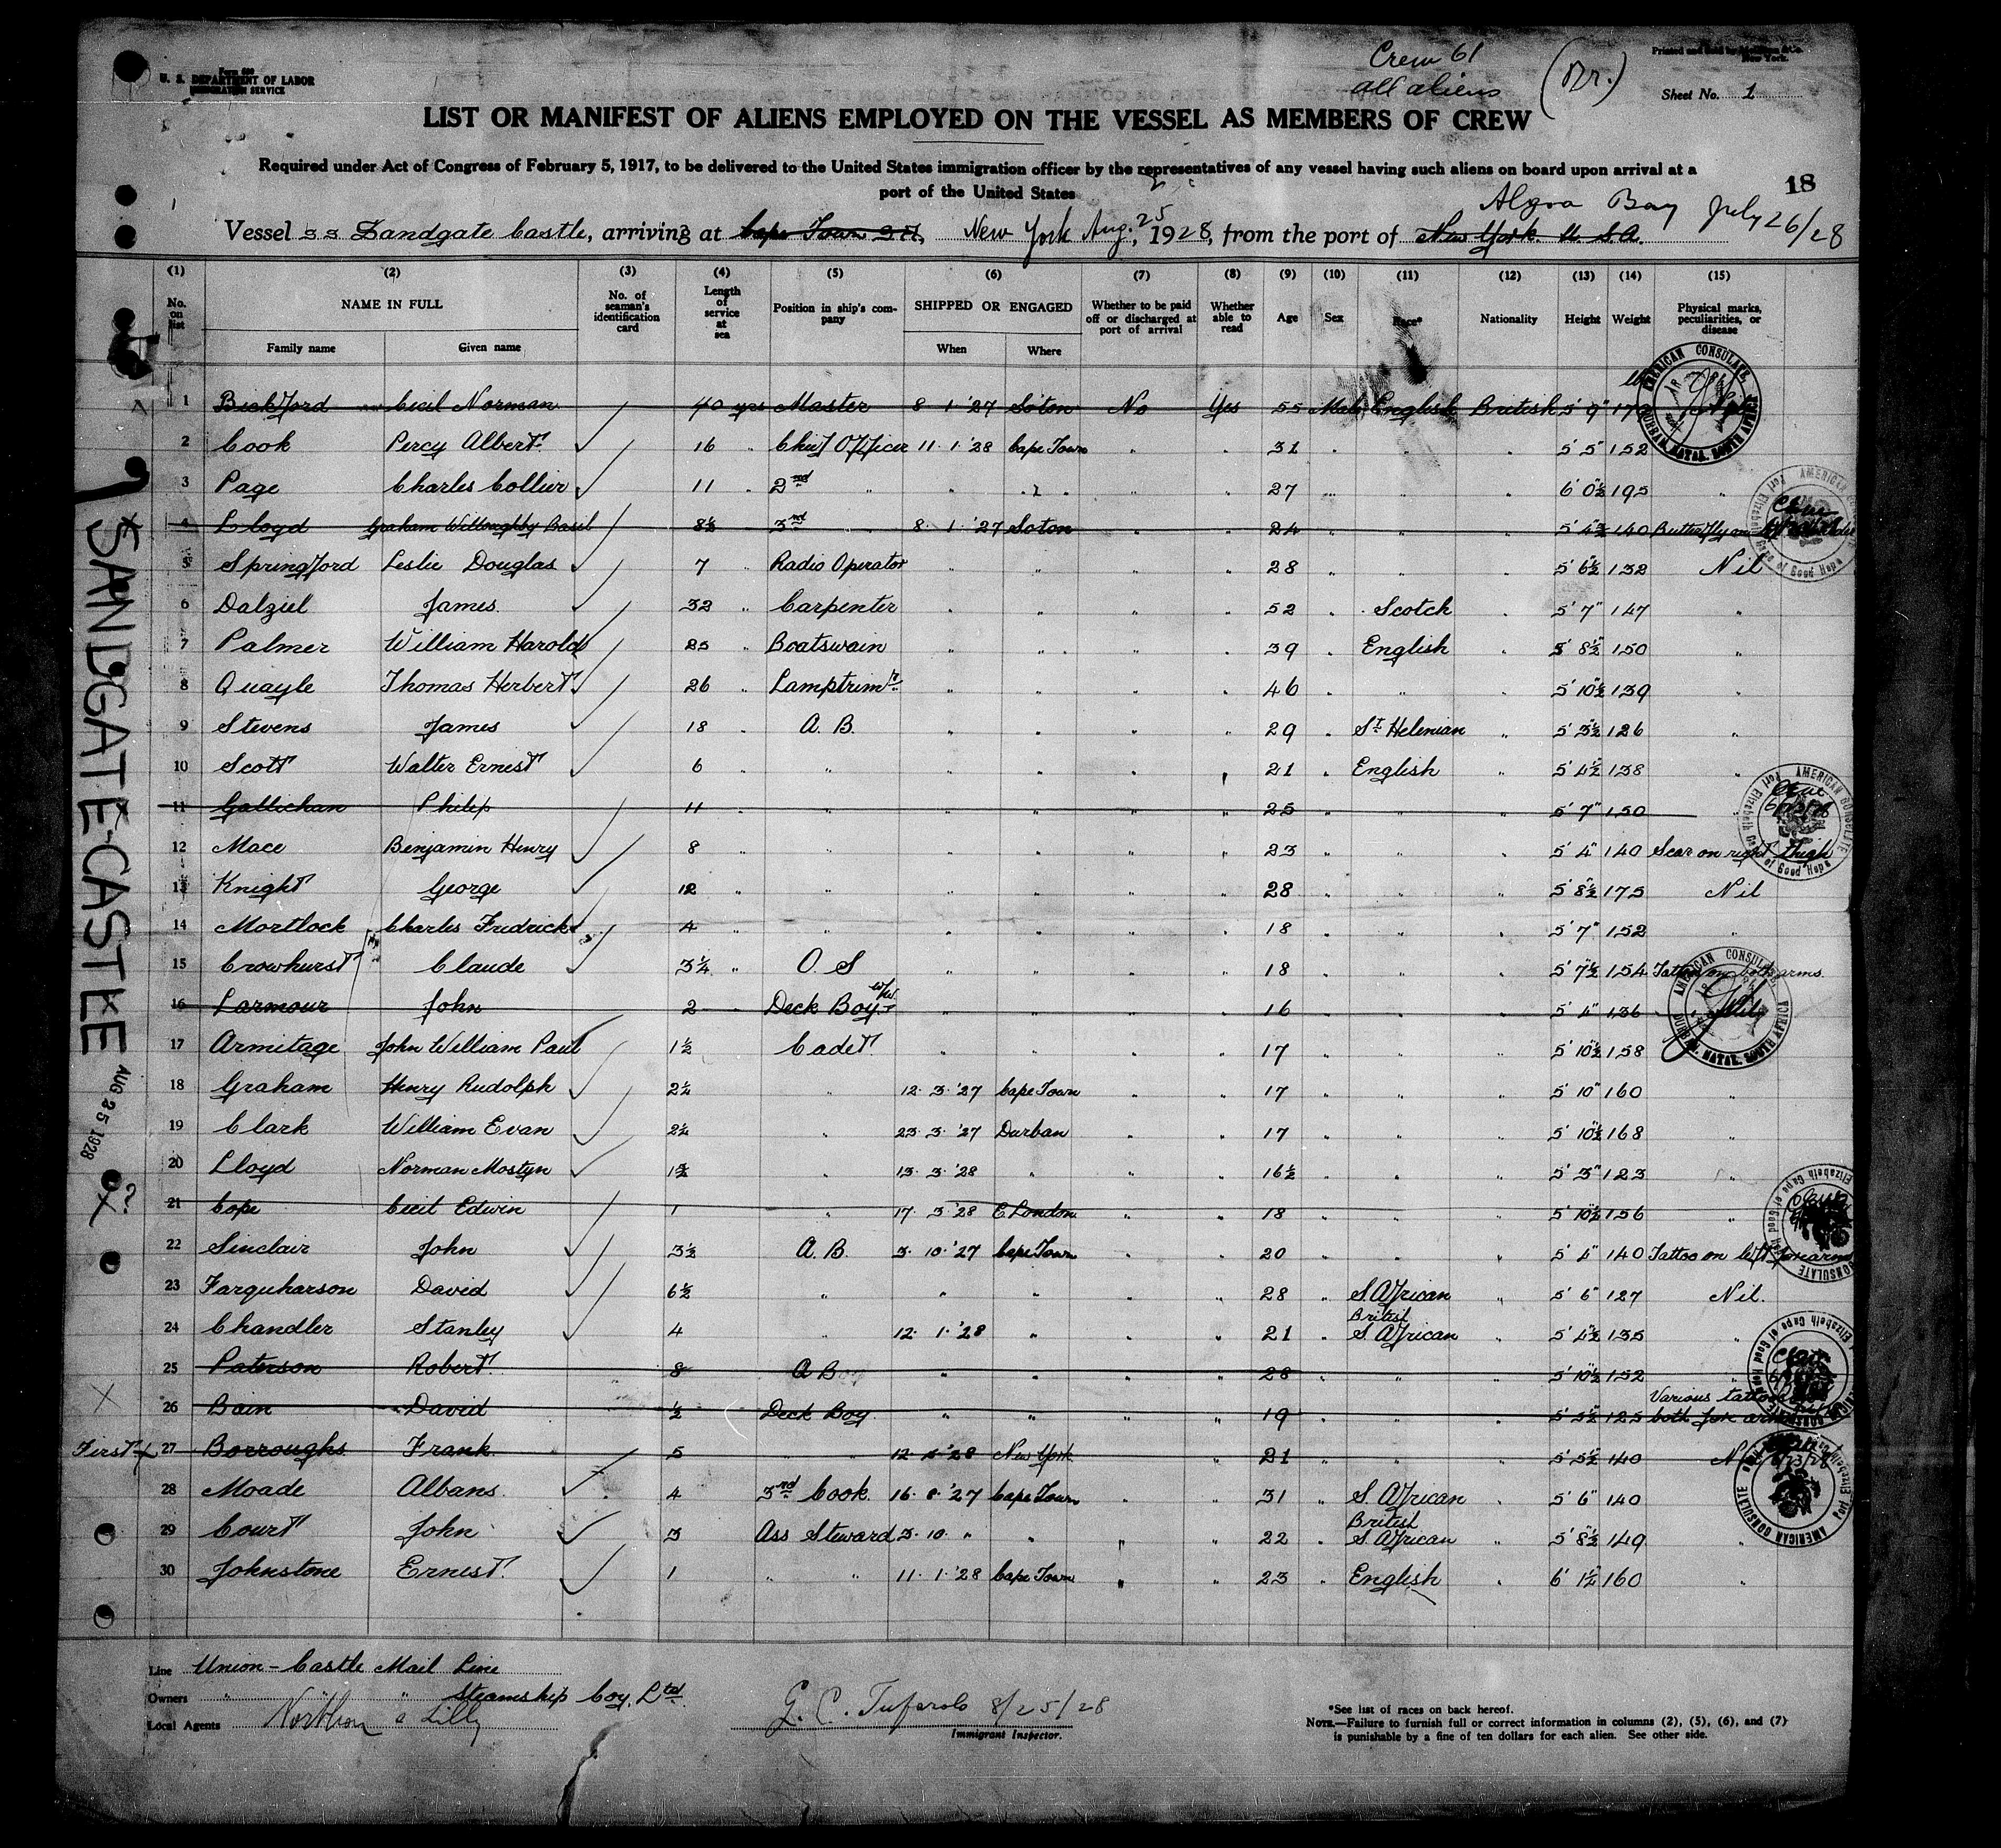 Form 680
U. S. DEPARTMENT OF LABOR
IMMIGRATION SERVICE
Crew 61
all aliens
(Br.)
Printed and sold by
New York.
Sheet No. 1
LIST OR MANIFEST OF ALIENS EMPLOYED ON THE VESSEL AS MEMBERS OF CREW
Required under Act of Congress of February 5, 1917, to be delivered to the United States immigration officer by the representatives of any vessel having such aliens on board upon arrival at a
port of the United States
18
Algoa Bay July 26/28
Vessel S S Sandgate Castle, arriving at Cape Town S A, New York Aug. 25, 1928, from the port of New York. U. S. A.
(1) (2) (3) (4) (5) (6) (7) (8) (9) (10) (11) (12) (13) (14) (15)
No. on list NAME IN FULL No. of seaman's identification card Length of service at sea Position in ship's company SHIPPED OR ENGAGED Whether to be paid off or discharged at port of arrival Whether able to read Age Sex Race* Nationality Height Weight Physical marks, peculiarities, or disease
Family name Given name When Where
1 Bickford Cecil Norman 40 yrs Master 8 1 '27 So'ton No Yes 55 Male English British 5' 9" 17
2 Cook Percy Albert 16 " Chief Officer 11 1 '28 Cape Town " " 31 " " " 5' 5" 152
3 Page Charles Collier 11 " 2nd " " " " " 27 " " " 6' 0½" 195 "
4 Lloyd Graham Willoughby Basil 8½ " 3rd " 8 1 '27 So'ton " " 24 " " " 5' 4¾" 140 Butterfly
5 Springford Leslie Douglas 7 " Radio Operator " " " " 28 " " " 5' 6½" 132 Nil
6 Dalziel James 32 " Carpenter " " " " 52 " Scotch " 5' 7" 147 "
7 Palmer William Harold 25 " Boatswain " " " " 39 " English " 5' 8½" 150 "
8 Quayle Thomas Herbert 26 " Lamptrimr " " " " 46 " " " 5' 10½" 139 "
9 Stevens James 18 " A. B. " " " " 29 " St Helenian " 5' 3½" 126 "
10 Scott Walter Ernest 6 " " " " " 21 " English " 5' 4½" 138 "
11 Gallichan Philip 11 " " " " " " 25 " " " 5' 7" 150
12 Mace Benjamin Henry 8 " " " " " 23 " " " 5' 4" 140 Scar on right thigh
13 Knight George 12 " " " " " " 28 " " " 5' 8½" 175 Nil
14 Mortlock Charles Fredrick 4 " " " " " " 18 " " " 5' 7" 152 "
15 Crowhurst Claude 3¼ " O. S " " " " 18 " " " 5' 7½" 154 Tattoo on both arms.
16 Larmour John 2 " Deck Boy " " " " 16 " " " 5' 4" 136
17 Armitage John William Paul 1½ Cadet " " " " 17 " " " 5' 10½" 158
18 Graham Henry Rudolph 2¼ " 12. 3. '27 Cape Town " " 17 " " " 5' 10" 160
19 Clark William Evan 2¼ " 23. 3. '27 Durban " " 17 " " " 5' 10½" 168 "
20 Lloyd Norman Mostyn 1¾ " 13. 3. '28 " " " 16½ " " " 5' 3" 123
21 Cope Cecil Edwin 1 " 17 3 '28 E London " " 18 " " " 5' 10½" 156 "
22 Sinclair John 3½ A. B. 3. 10. '27 Cape Town " " 20 " " " 5' 4" 140 Tattoo on left forearm
23 Farquharson David 6½ " " " " " 28 " S. African " 5' 6" 127 Nil.
24 Chandler Stanley 4 " 12. 1. '28 " " " 21 " British S. African " 5' 4½" 135 "
25 Paterson Robert 8 A B " " " " 28 " " " 5' 10½" 152
26 Bain David ½ Deck Boy " " " " 19 " " " 5' 5½" 125 Various tattoos both fore arms
First 27 Borroughs Frank 5 " " 12 '28 New York 21 " 5' 5½" 140 Nil
28 Moade Albans 4 3rd Cook. 16. 8. '27 Cape Town " " 31 " S. African " 5' 6" 140
29 Court John 3 Ass Steward 3. 10. " " " " 22 " British S. African " 5' 8½" 149 "
30 Johnstone Ernest 1 " " 11. 1. '28 Cape Town " " 23 " English " 6' 1½" 160 "
AMERICAN CONSULATE, DURBAN, NATAL, SOUTH AFRICA
AMERICAN CONSULATE Port Elizabeth Cape of Good Hope
SANDGATE-CASTLE
AUG 25 1928
Line Union-Castle Mail Line
Owners " " " Steamship Coy. Ltd.
Local Agents Norton & Lilly
8/25/28
Immigrant Inspector.
*See list of races on back hereof.
NOTE.—Failure to furnish full or correct information in columns (2), (5), (6), and (7)
is punishable by a fine of ten dollars for each alien. See other side.